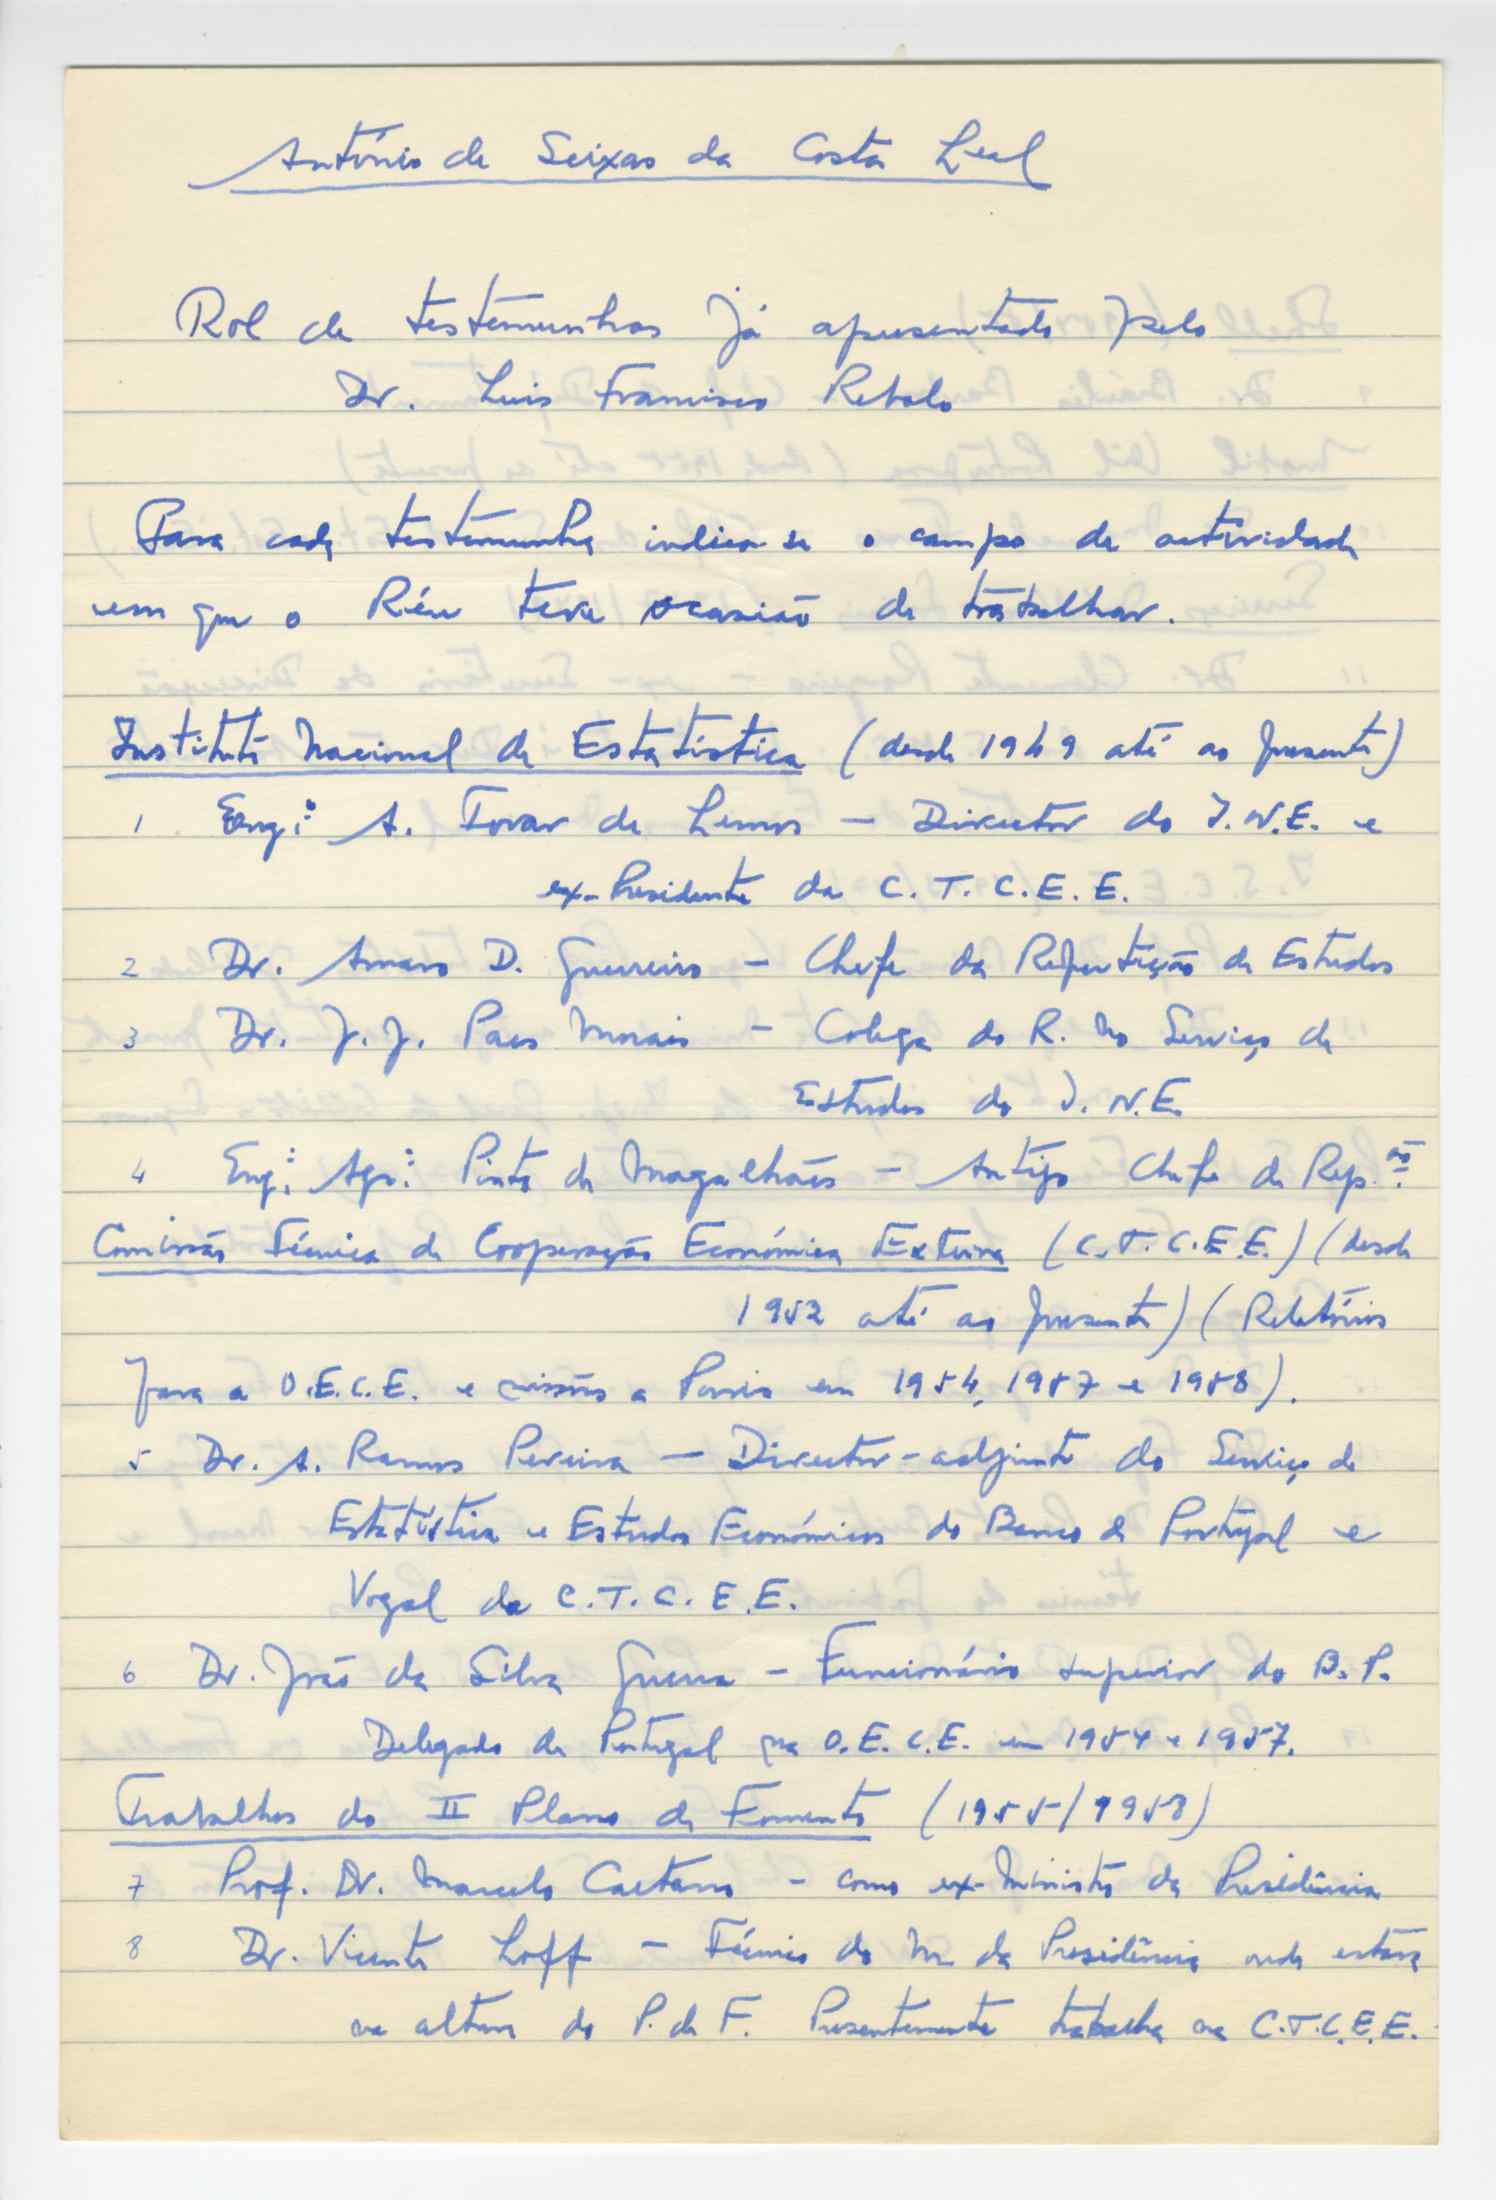 António de Seixas da Costa Leal
Rol de testemunhas já apresentado pelo
Dr. Luis Francisco Rebelo
Para cada testemunha indica-se o campo de actividade
em que o Réu teve ocasião de trabalhar.
Instituto Nacional de Estatística (desde 1949 até ao presente)
1 Engº A. Tovar de Lemos – Director do I.N.E. e
ex-Presidente da C.T.C.E.E.
2 Dr. Amaro D. Guerreiro – Chefe da Repartição de Estudos
3 Dr. J. J. Paes Morais – Colega do R. no Serviço de
Estudos do I.N.E.
4 Engº Agrº Pinto de Magalhães – Antigo Chefe de Rep.ão
Comissão Técnica de Cooperação Económica Externa (C.T.C.E.E.) (desde
1952 até ao presente) (Relatórios
para a O.E.C.E. e missões a Paris em 1954, 1957 e 1958).
5 Dr. A. Ramos Pereira – Director-adjunto do Serviço de
Estatística e Estudos Económicos do Banco de Portugal e
Vogal da C.T.C.E.E.
6 Dr. João da Silva Guerra – Funcionário superior do B.P.
Delegado de Portugal na O.E.C.E. em 1954 e 1957.
Trabalhos do II Plano de Fomento (1955/1958)
7 Prof. Dr. Marcelo Caetano – como ex-Ministro da Presidência
8 Dr. Vicente Loff – Técnico do M. da Presidência onde estava
na altura do P. de F. Presentemente trabalha na C.T.C.E.E.